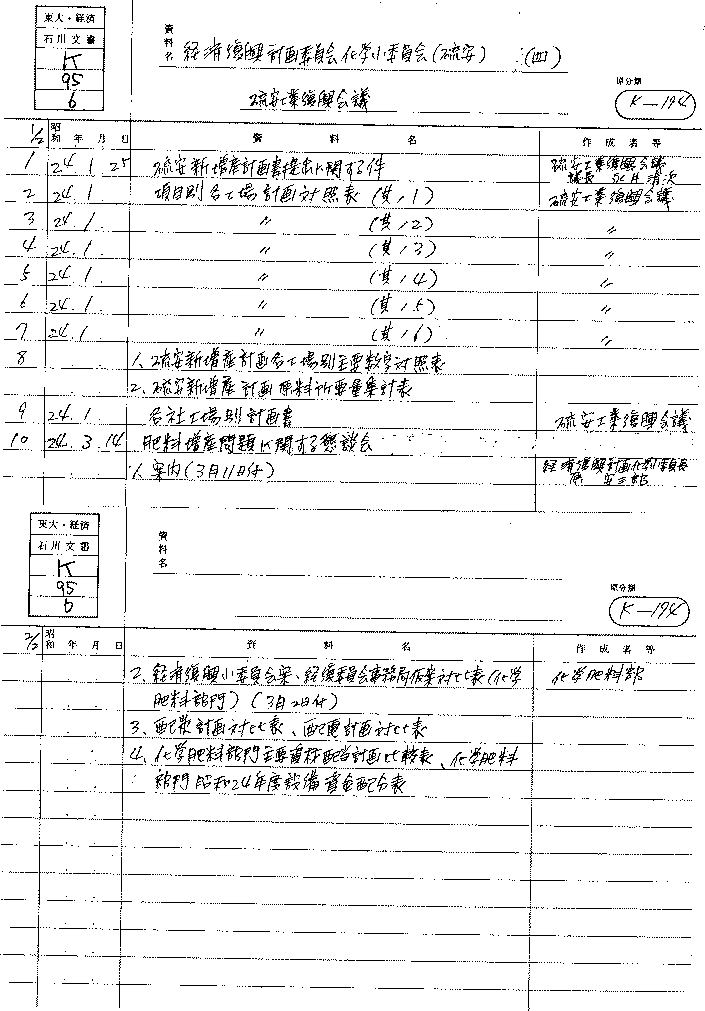 東大・経済
石川文書
K
95
6
資料名 経済復興計画委員会化学小委員会(硫安) (四)
硫安工業復興会議
原分類
K-194
1/2 昭和 年 月 日 資 料 名 作成者等
1 24 1 25 硫安新増産計画書提出に関する件 硫安工業復興会議
議長
2 24. 1 項目別各工場計画対照表 (其ノ1) 硫安工業復興会議
3 24. 1. 〃 (其ノ2) 〃
4 24. 1. 〃 (其ノ3) 〃
5 24. 1. 〃 (其ノ4) 〃
6 24. 1. 〃 (其ノ5) 〃
7 24. 1 〃 (其ノ6) 〃
8 1、硫安新増産計画各工場別主要数字対照表
2、硫安新増産計画原料所要量集計表
9 24. 1. 各社工場別計画書 硫安工業復興会議
10 24. 3. 14 肥料増産問題に関する懇談会
1、案内(3月11日付) 経済復興計画化学小委員長
原 安三郎
東大・経済
石川文書
K
95
6
資料名
原分類
K-194
2/2 昭和 年 月 日 資 料 名 作成者等
2、経済復興小委員会案、経復委員会事務局作業対比表(化学 化学肥料部
肥料部門)(3月2日付)
3、配炭計画対比表、配電計画対比表
4、化学肥料部門主要資材配当計画比較表、化学肥料
部門昭和24年度設備資金配分表